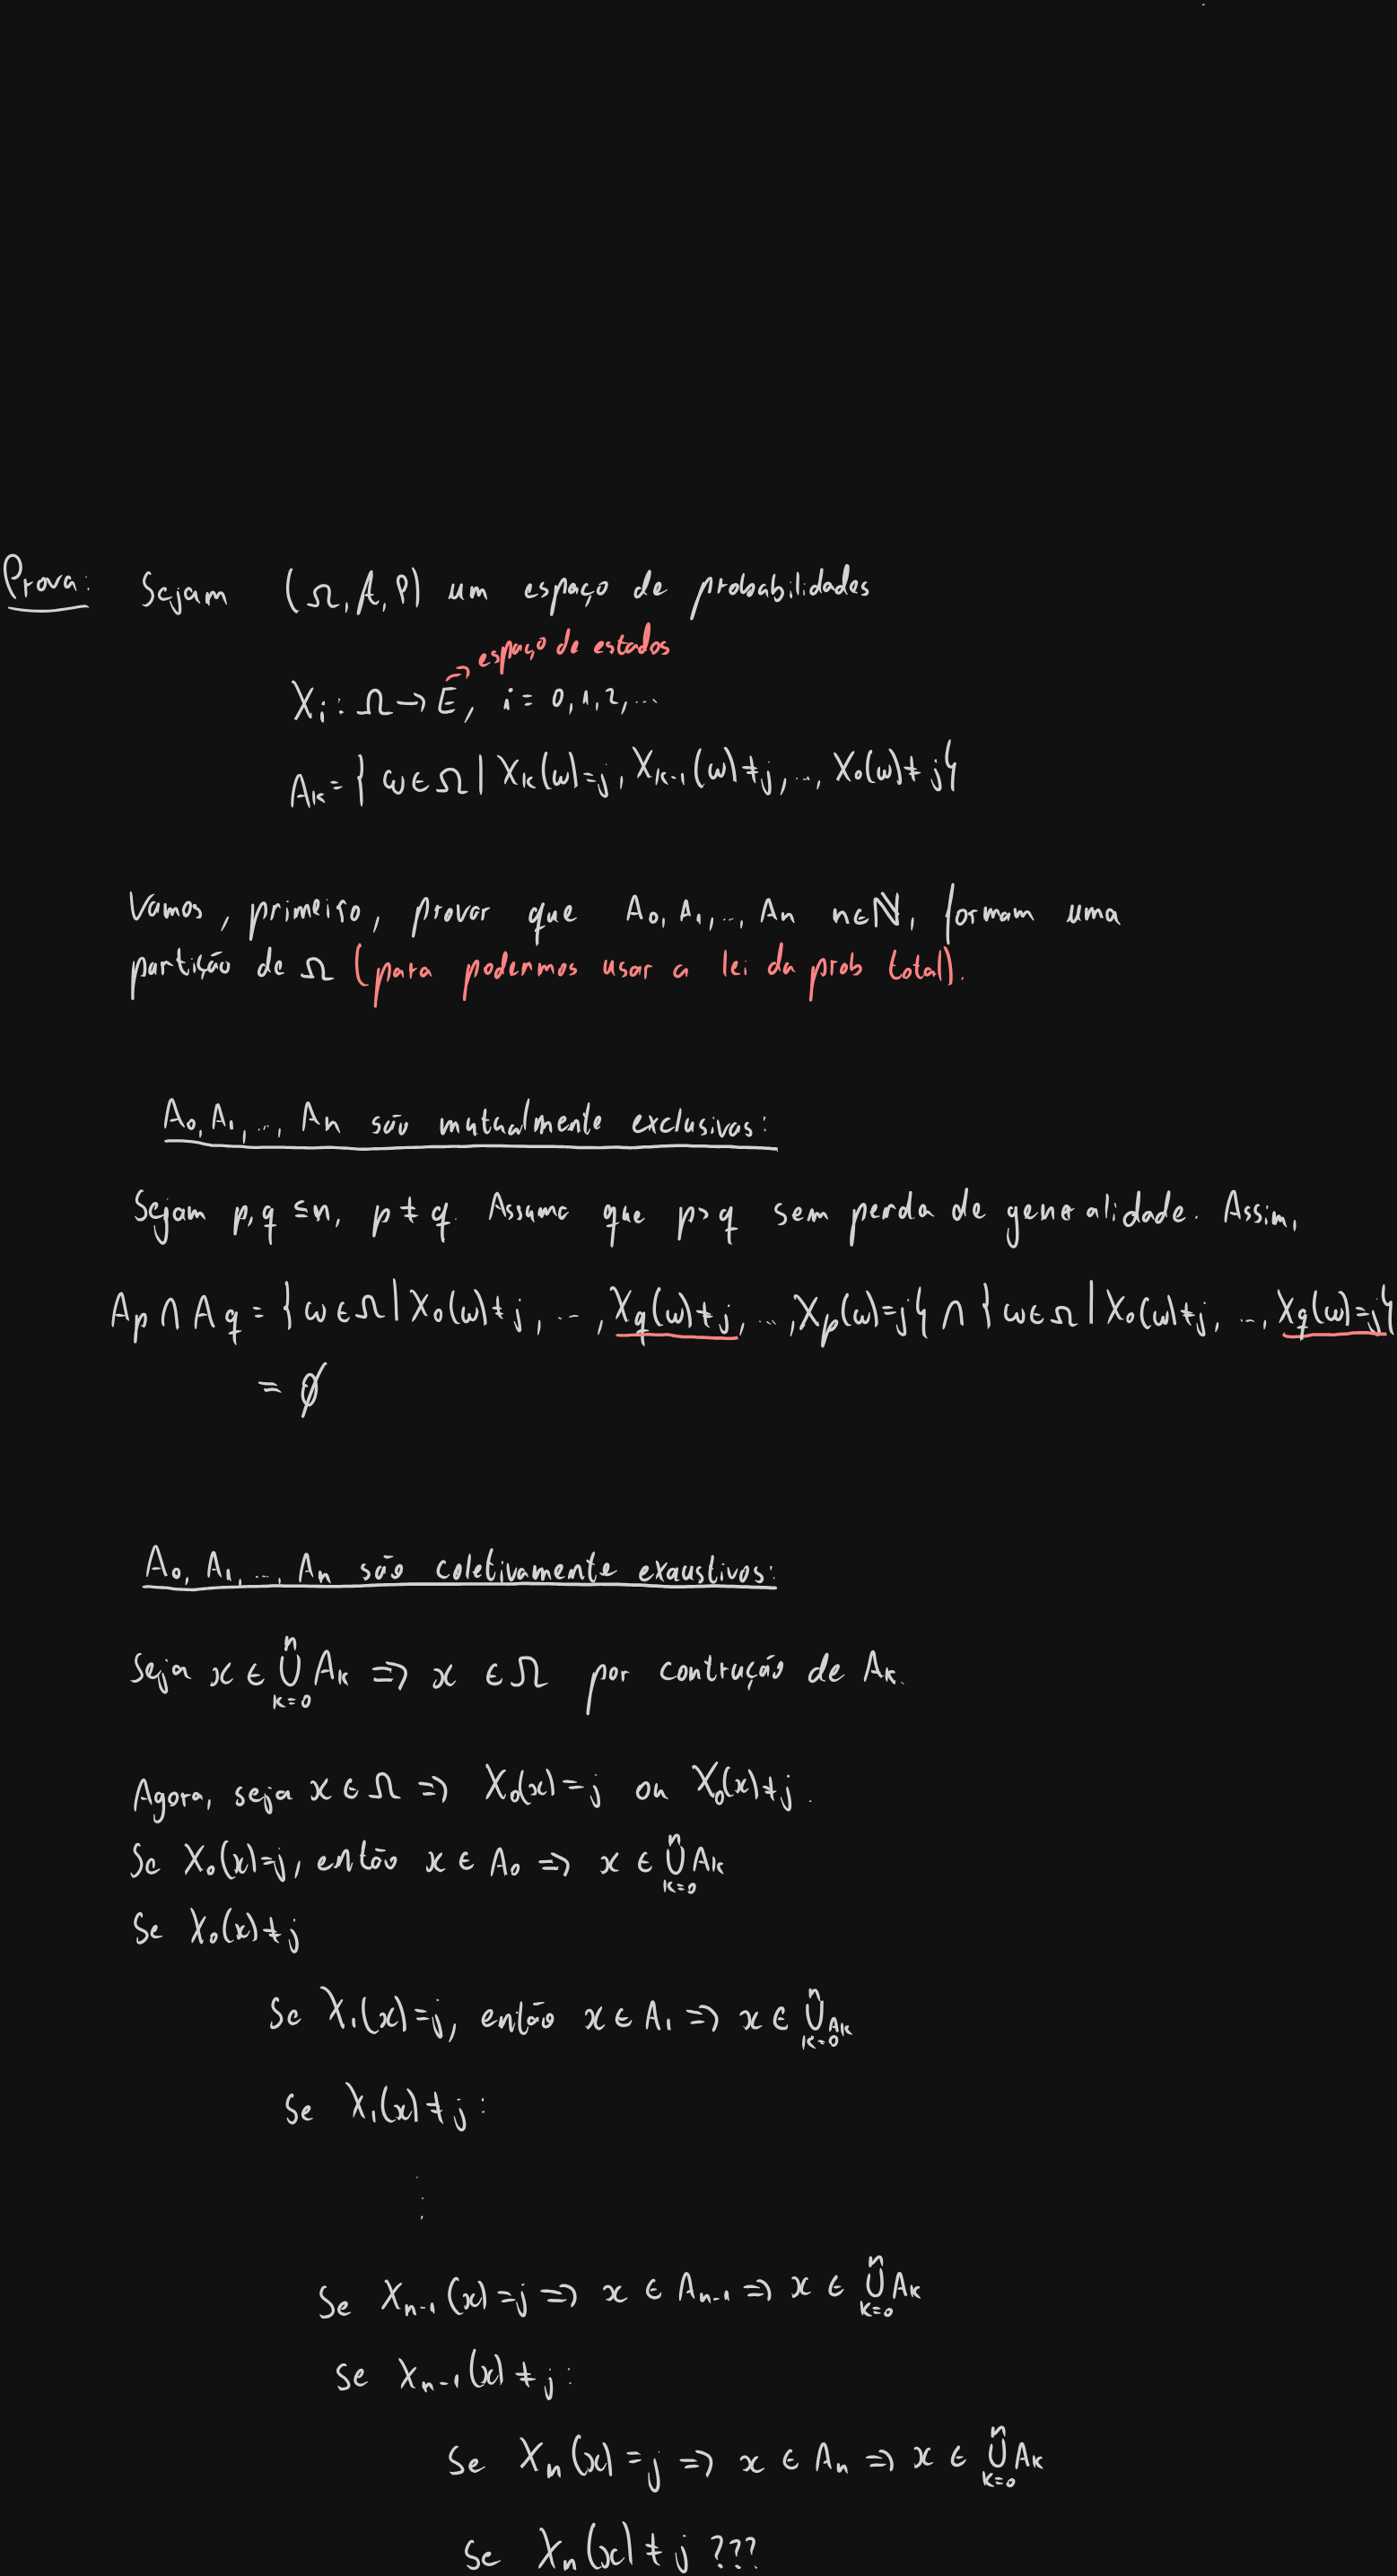 Prova: Sejam (Ω, A, P) um espaço de probabilidades
→ espaço de estados
Xi : Ω → E, i = 0, 1, 2, ...
Ak = { ω ∈ Ω | Xk(ω) = j, Xk-1(ω) ≠ j, ..., X0(ω) ≠ j }
Vamos, primeiro, provar que A0, A1, ..., An n ∈ ℕ, formam uma
partição de Ω (para podermos usar a lei da prob total).
A0, A1, ..., An são mutualmente exclusivas:
Sejam p, q ≤ n, p ≠ q. Assuma que p > q sem perda de generalidade. Assim,
Ap ∩ Aq = { ω ∈ Ω | X0(ω) ≠ j, ..., Xq(ω) ≠ j, ..., Xp(ω) = j } ∩ { ω ∈ Ω | X0(ω) ≠ j, ..., Xq(ω) = j }
= ∅
A0, A1, ..., An são coletivamente exaustivos:
Seja x ∈ ⋃ⁿk=0 Ak ⇒ x ∈ Ω por contrução de Ak.
Agora, seja x ∈ Ω ⇒ X0(x) = j ou X0(x) ≠ j.
Se X0(x) = j, então x ∈ A0 ⇒ x ∈ ⋃ⁿk=0 Ak
Se X0(x) ≠ j
Se X1(x) = j, então x ∈ A1 ⇒ x ∈ ⋃ⁿk=0 Ak
Se X1(x) ≠ j :
⋮
Se Xn-1(x) = j ⇒ x ∈ An-1 ⇒ x ∈ ⋃ⁿk=0 Ak
Se Xn-1(x) ≠ j :
Se Xn(x) = j ⇒ x ∈ An ⇒ x ∈ ⋃ⁿk=0 Ak
Se Xn(x) ≠ j ???